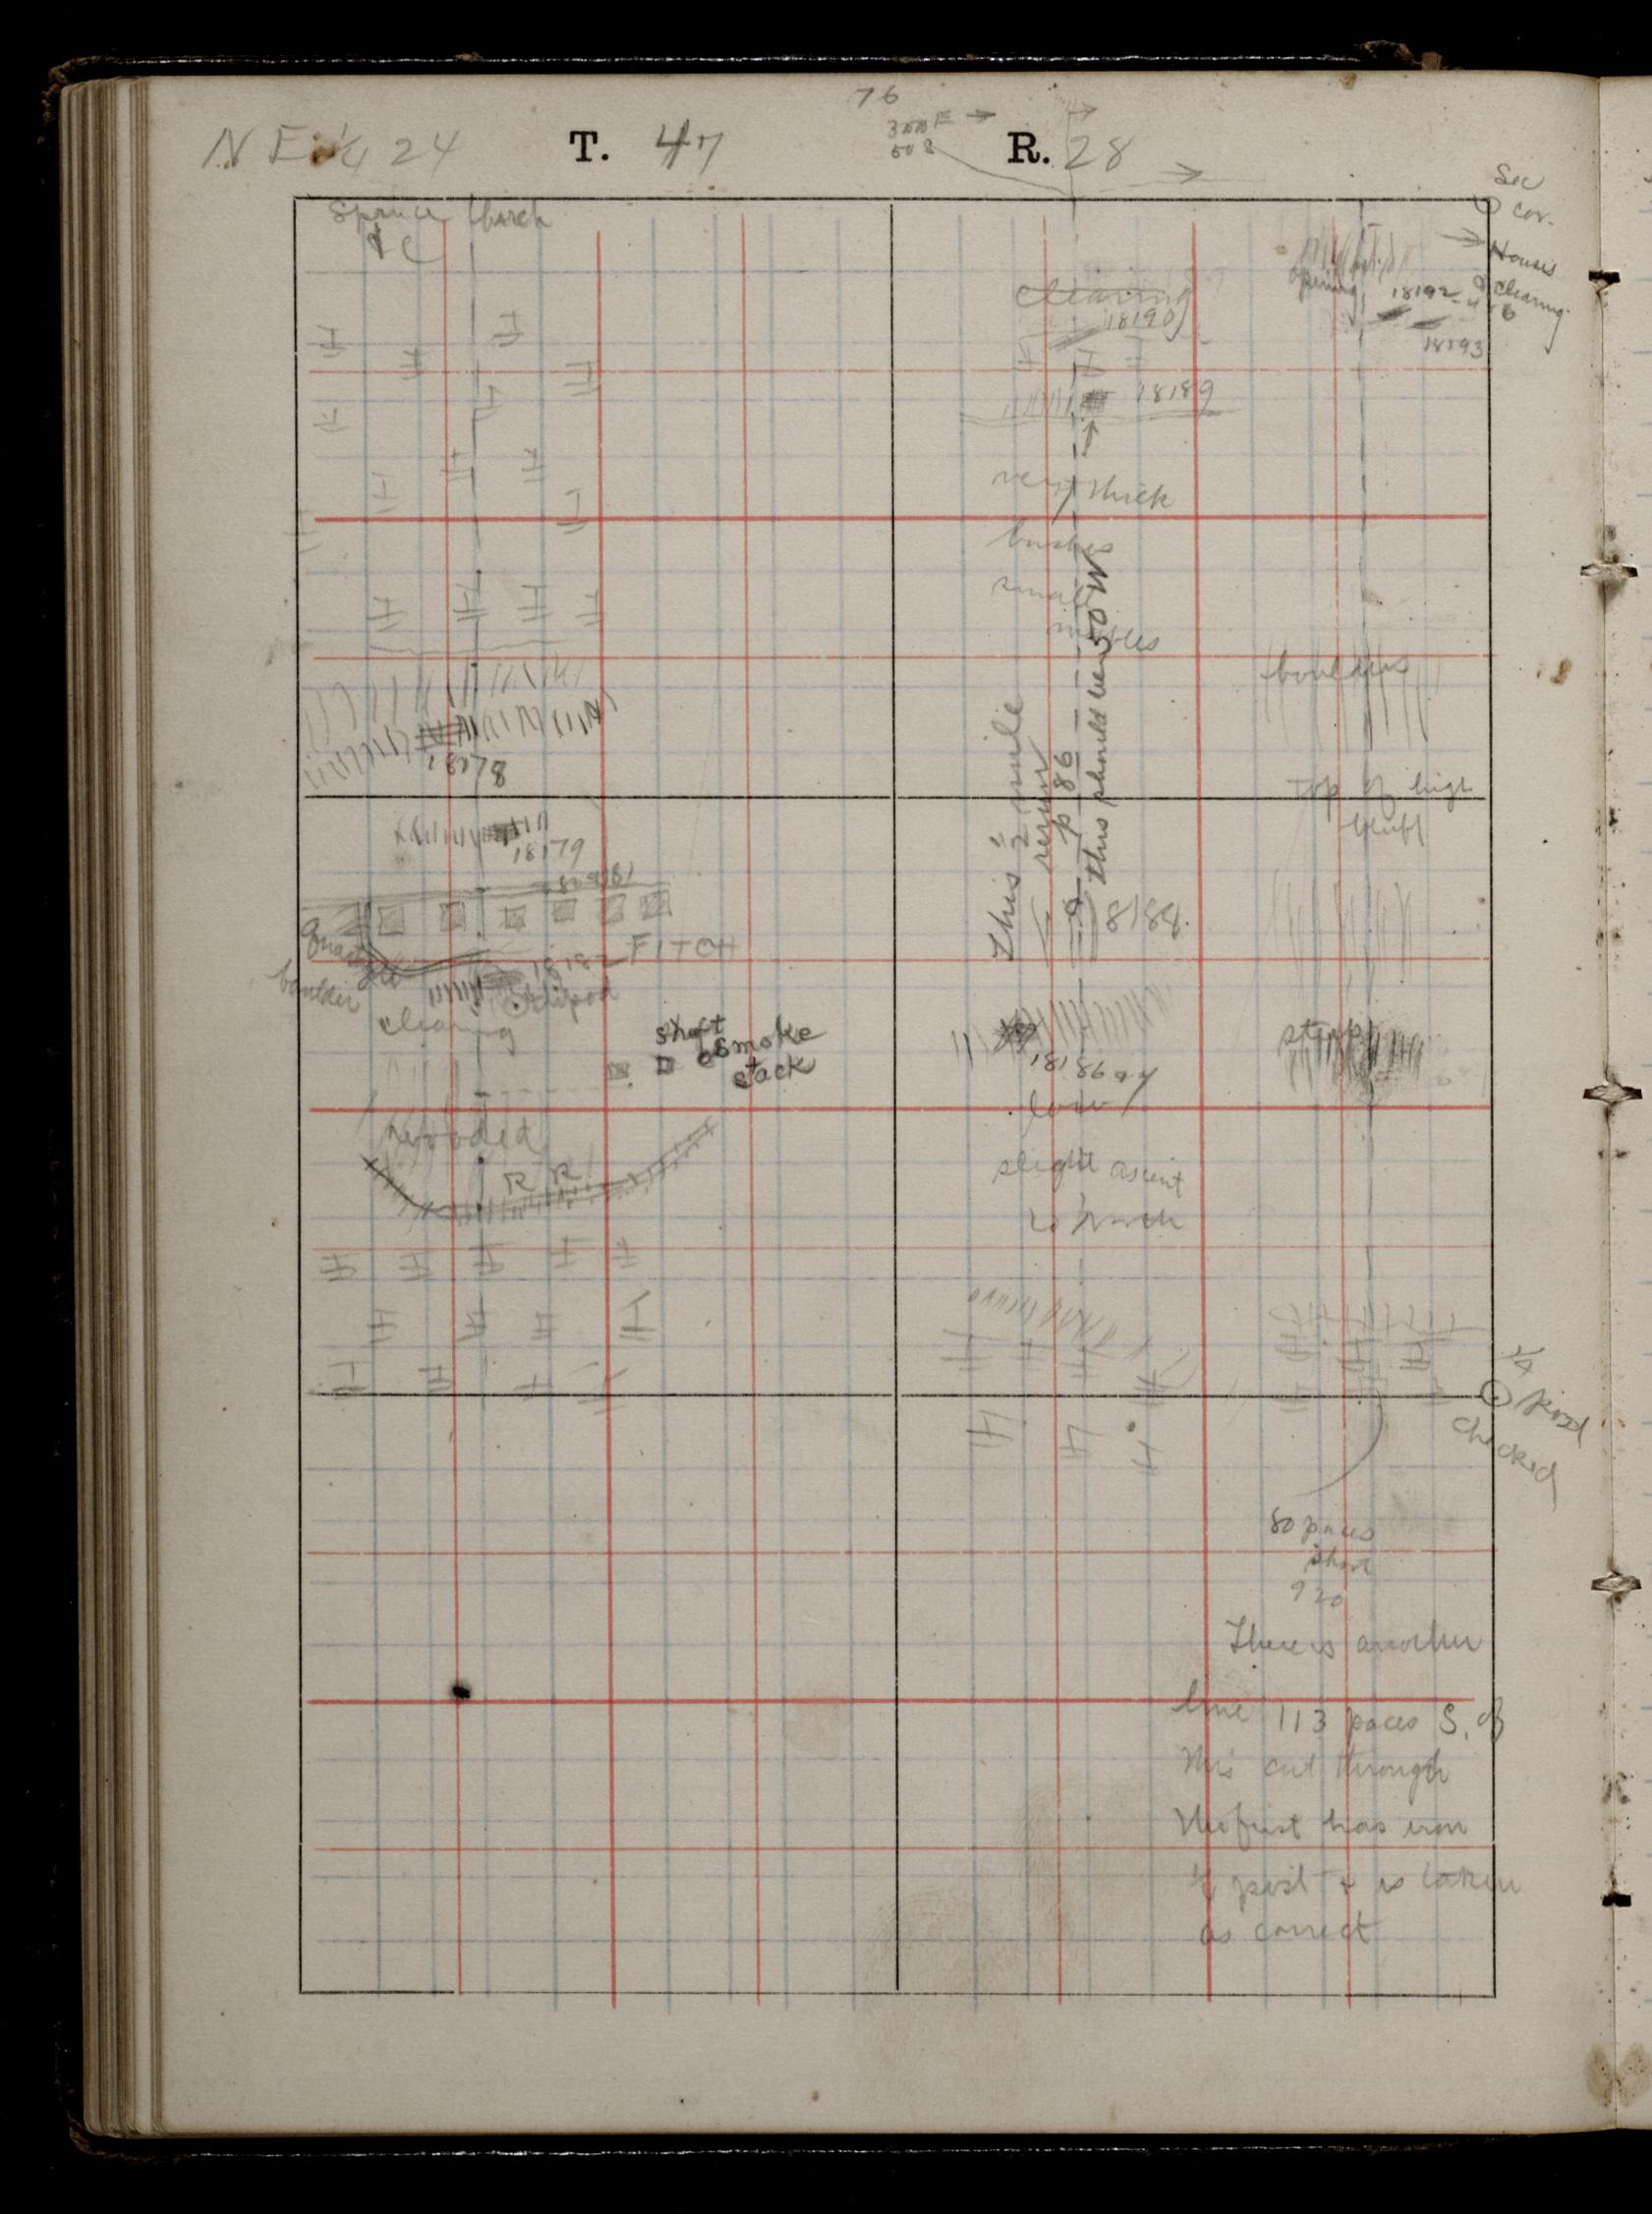 76
NE 1/4 24 T. 47 R. 28
300 E →
50 S
Sec
cor.
Spruce & larch
Houses
& clearing
opening
18192
18193
clearing
18190
18189
very thick
bushes
small
maples
This 1/2 mile
rerun
p 86
this should be 50 W
18188
boulders
top of high
bluff
18178
18179
18181
boulder
18182
FITCH
tripod
clearing
shaft
smoke
stack
wooded
R R
18186 & 7
low
slight ascent
to north
steep
1/4
post
checked
80 paces
short
920
There is another
line 113 paces S. of
this cut through
The first has iron
1/4 post & is taken
as correct